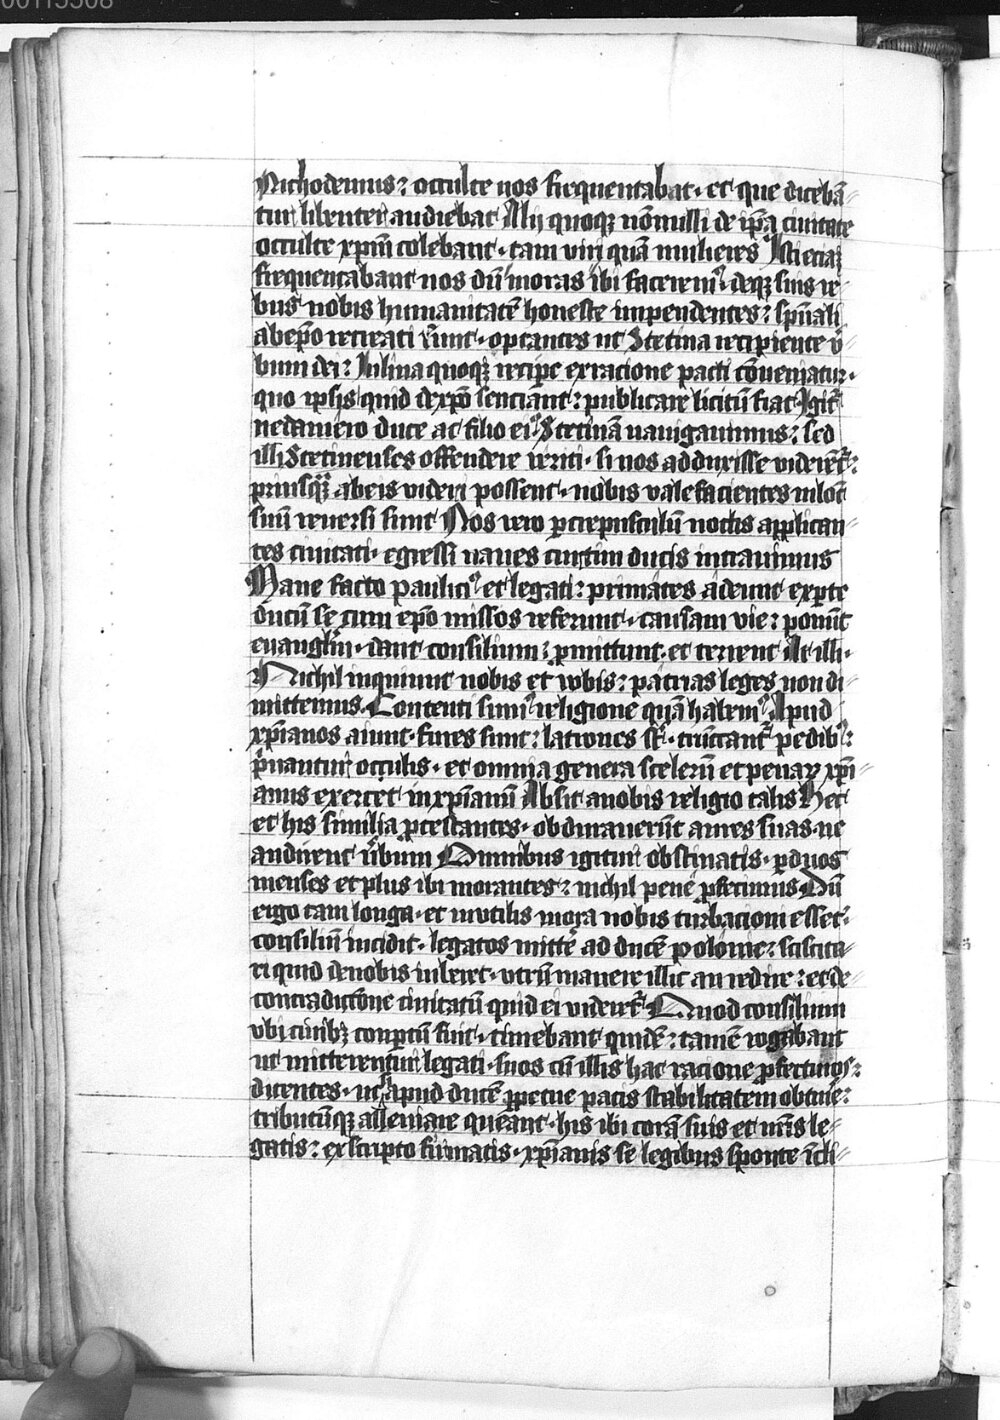 Nichodemus: occulte nos frequentabat. et que diceba̅-
tur libenter audiebat Alij quoqꝫ no̅nulli de ip̅a ciuitate
occulte xp̅m colebant. tam viri qua̅ mulieres Isti etiaꝫ
frequentabant nos du̅ moras ibi faceremꝰ. deqꝫ suis re-
bus nobis humanitate̅ honeste impendentes: sp̅uali
ab ep̅o recreati su̅nt. optantes ut Stetina recipiente v̅-
bum dei: Iulina quoqꝫ recipe̅ ex racione pacti co̅ueniatur.
quo ipsis quid de xp̅o senciant: publicare licitu̅ fiat Igit̅
nedamiro duce ac filio eiꝰ Stetina̅ nauigauimus: sed
illi Stetinenses offendere veriti. si nos adduxisse vider̅et:
priusqua̅ ab eis videri possent. nobis vale facientes in locu̅
suu̅ reuersi sunt Nos vero p̱ crepusculu̅ noctis applican-
tes ciuitati. egressi naues curtim ducis intrauimus
Mane facto pauliciꝰ et legati: primates adeunt ex p̱te
ducu̅ se cum ep̅o missos referunt. causam vie: ponu̅t
euangl̅m. dant consilium: p̱mittunt. et terrent At illi.
Nichil inquiunt nobis et vobis: patrias leges non di-
mittemus. Contenti sumꝰ religione qua̅ habemꝰ Apud
xp̅ianos aiunt. fures sunt: latrones su̅t. tru̅cant̅ pedibꝰ:
p̅uantur occulis. et omnia genera sceleru̅ et penaꝝ xp̅i-
anus exercet in xp̅ianu̅ Absit a nobis religio talis Hec
et his similia p̱testantes. obdurauer̅nt aures suas. ne
audirent v̅bum Omnibus igitur obstinatis. p̱ duos
menses et plus ibi morantes: nichil pene p̱fecimus Du̅
ergo tam longa. et inutilis mora nobis turbacioni esset.
consiliu̅ incidit. legatos mitte̅ ad duce̅ polonie: scisita-
ri quid de nobis iuberet. vtru̅ manere illic an redire: et de
contradictione ciuitatu̅ quid ei videret̅ Quod consilium
vbi ciuibꝫ conp̱tu̅ fuit. timebant quide̅: tame̅ rogabant
ut mitterentur legati. suos cu̅ illis hac racione p̱fecturos:
dicentes. ut si apud duce̅ p̱petue pacis stabilitatem obtine̅:
tributu̅qꝫ alleuiare queant. his ibi cora̅ suis et n̅ris le-
gatis: ex scripto firmatis. xp̅ianis se legibus sponte i̅cli-